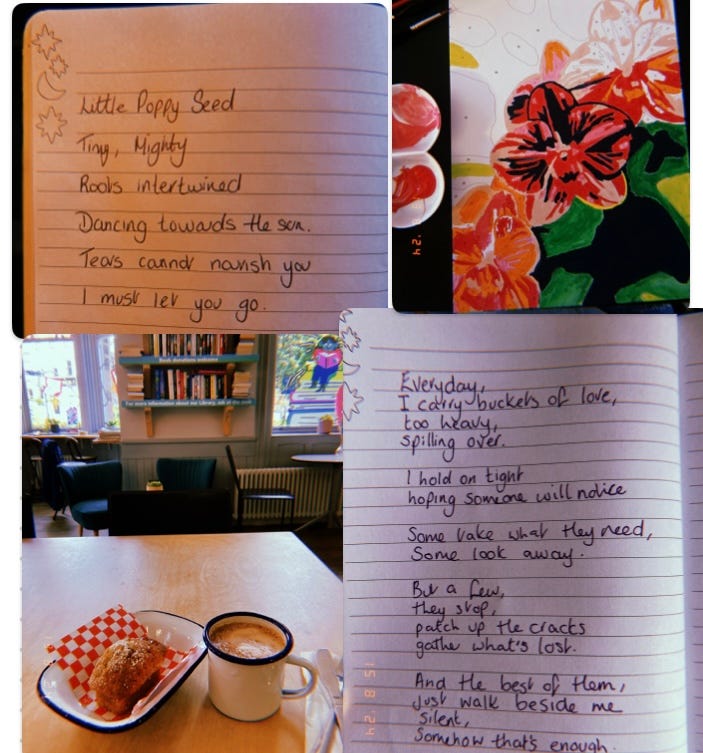 Little Poppy Seed
Tiny, Mighty
Roots intertwined
Dancing towards the sun.
Tears cannot nourish you
I must let you go.
'24
For more information about our library, ask at the desk
Everyday,
I carry buckets of love,
too heavy,
spilling over.
I hold on tight
hoping someone will notice
Some take what they need,
Some look away.
But a few,
they stop,
patch up the cracks
gather what's lost.
And the best of them,
Just walk beside me
silent,
Somehow that's enough.
15 8 '24